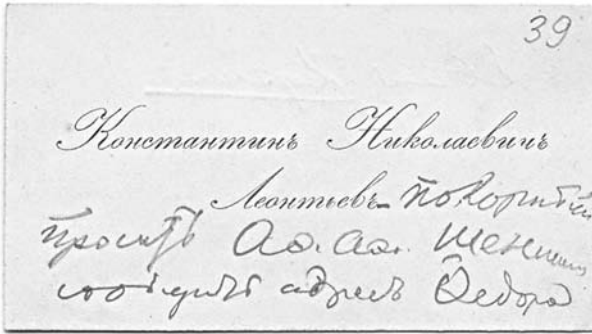 39
Константинъ Николаевичъ
Леонтьевъ - покорнѣйше
проситъ Аө. Аө. Шеншина
сообщить адресъ Ѳедора